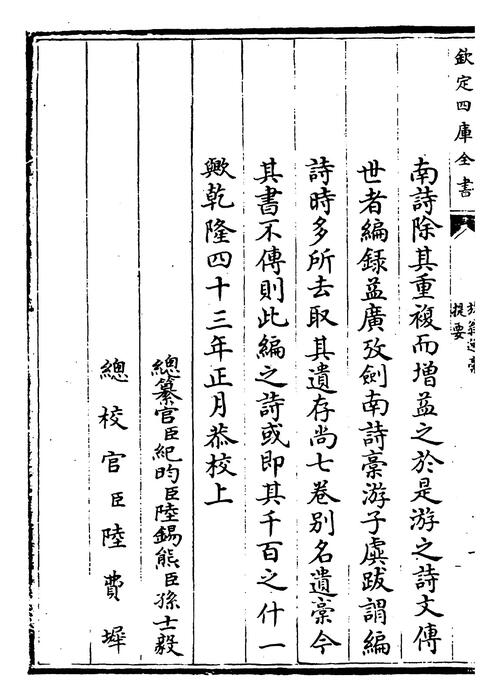 欽定四庫全書
提要
南詩除其重複而增益之於是游之詩文傳
世者編録益廣攷劍南詩稾游子虡跋謂編
詩時多所去取其遺存尚七巻别名遺稾今
其書不傳則此編之詩或即其千百之什一
歟乾隆四十三年正月恭校上
總纂官臣紀昀臣陸錫熊臣孫士毅
總校官臣陸費墀